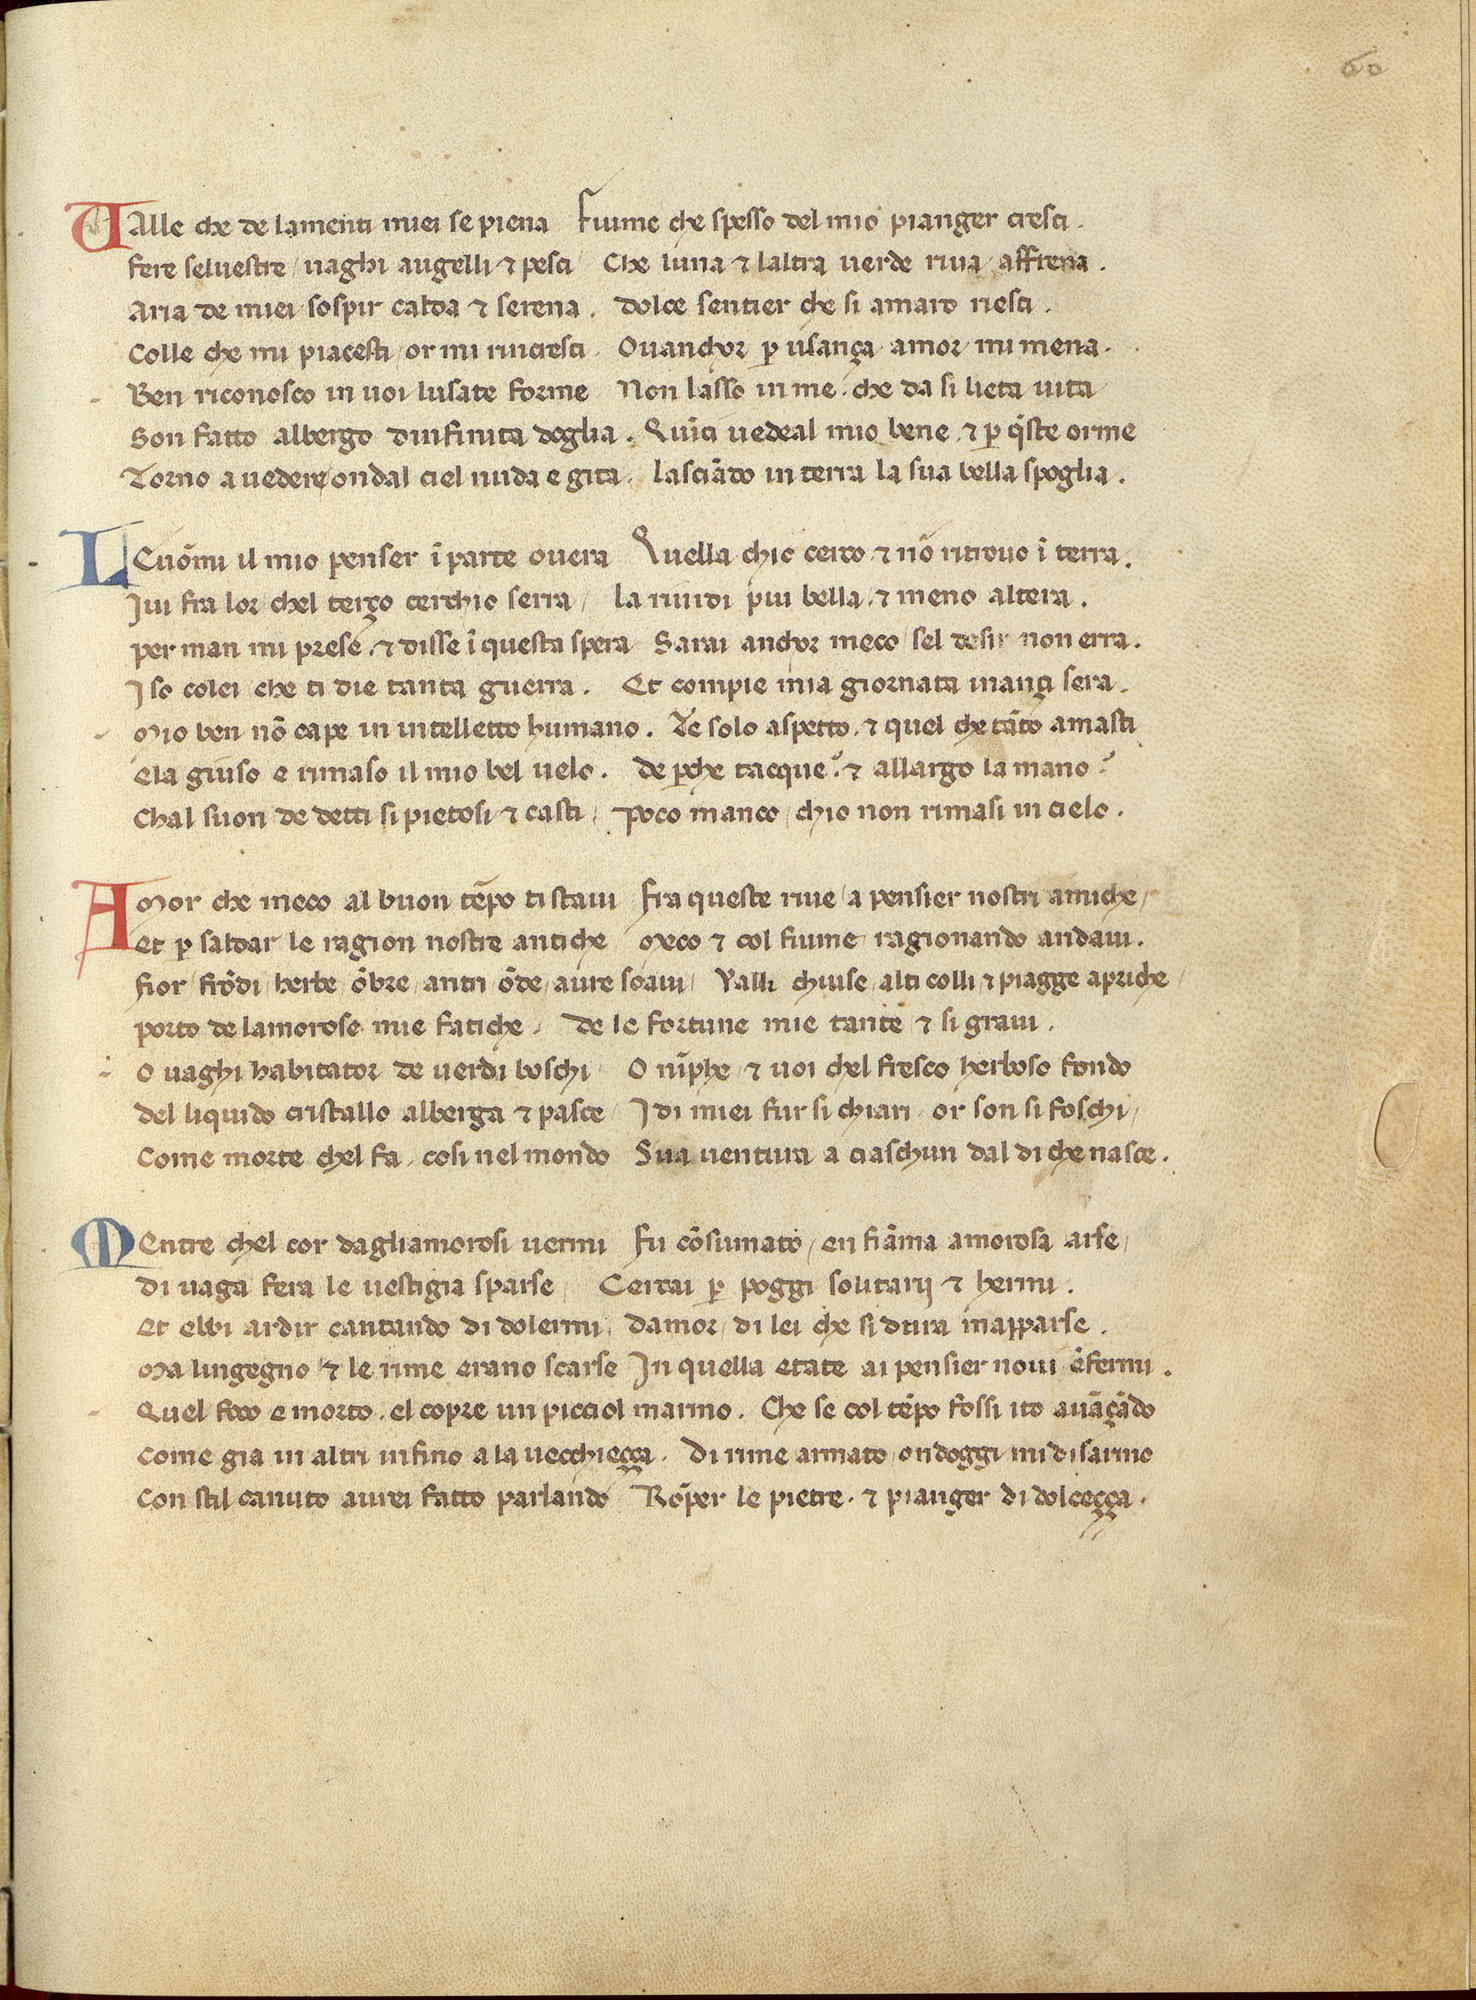 60
VAlle che de lamenti miei se piena Fiume che spesso del mio pianger cresci.
Fere seluestre / uaghi augelli & pesci Che luna & laltra uerde riua affrena.
Aria de miei sospir calda & serena. dolce sentier che si amaro riesci.
Colle che mi piacesti / or mi rincresci. Ouanchor p̲ usança amor mi mena.
Ben riconosco in uoi lusate forme Non lasso in me. che da si lieta uita
Son fatto albergo dinfinita doglia. Quīci uedeal mio bene. & p̲ q̄ste orme
Torno a uedere / ondal ciel nuda e gita. lasciādo in terra la sua bella spoglia.
LEuōmi il mio penser ī parte ouera Quella chio cerco & nō ritrouo ī terra.
Iui fra lor chel terço cerchio serra / la riuidi piu bella & meno altera.
Per man mi prese. & disse ī questa spera Sarai anchor meco / sel desir non erra.
I so colei che ti die tanta guerra. Et compie mia giornata inançi sera.
Mio ben nō cape in intelletto humano. Te solo aspetto. & quel che tāto amasti
ela giuso e rimaso il mio bel uelo. de p̲che tacque? & allargo la mano?
Chal suon de detti si pietosi & casti / Poco manco / chio non rimasi in cielo.
AMor che meco al buon tēpo ti staui Fra queste riue / a pensier nostri amiche /
Et p̲ saldar le ragion nostre antiche Meco & col fiume ragionando andaui.
Fior / frōdi / herbe / ōbre / antri / ōde / aure soaui / Valli chiuse / alti colli / & piagge apriche /
Porto de lamorose mie fatiche. de le fortune mie tante & si graui.
O uaghi habitator de uerdi boschi / O nīphe & uoi chel fresco herboso fondo
del liquido cristallo alberga & pasce / I di miei fur si chiari. or son si foschi /
Come morte chel fa. cosi nel mondo Sua uentura a ciaschun dal di che nasce.
MEntre chel cor dagliamorosi uermi Fu cōsumato / en fiāma amorosa arse /
di uaga fera le uestigia sparse / Cercai p̲ poggi solitarij & hermi.
Et ebbi ardir cantando di dolermi / damor / di lei che si dura mapparse.
Ma lingegno & le rime erano scarse In quella etate ai pensier noui ēfermi.
Quel foco e morto. el copre un picciol marmo. Che se col tēpo fossi ito auāçādo
Come gia in altri infino a la uecchieçça. Di rime armato / ondoggi mi disarmo
Con stil canuto aurei fatto parlando Rōper le pietre. & pianger di dolceçça.